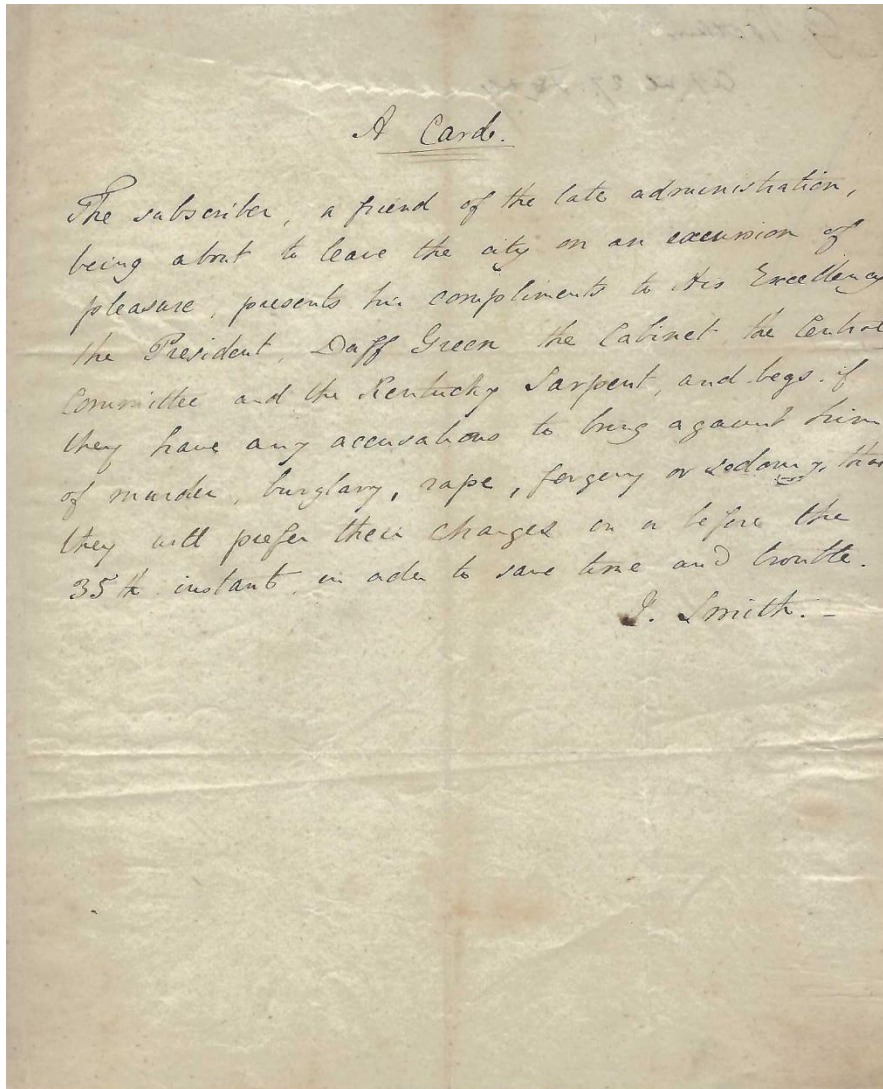 A Card.
The subscriber, a friend of the late administration,
being about to leave the city on an excursion of
pleasure, presents his compliments to His Excellency
the President, Duff Green the Cabinet the Central
Committee and the Kentucky Sarpent, and begs, if
they have any accusations to bring against him
of murder, burglary, rape, forgery or sodomy, that
they will prefer their charges on or before the
35th instant in order to save time and trouble.
J. Smith. –